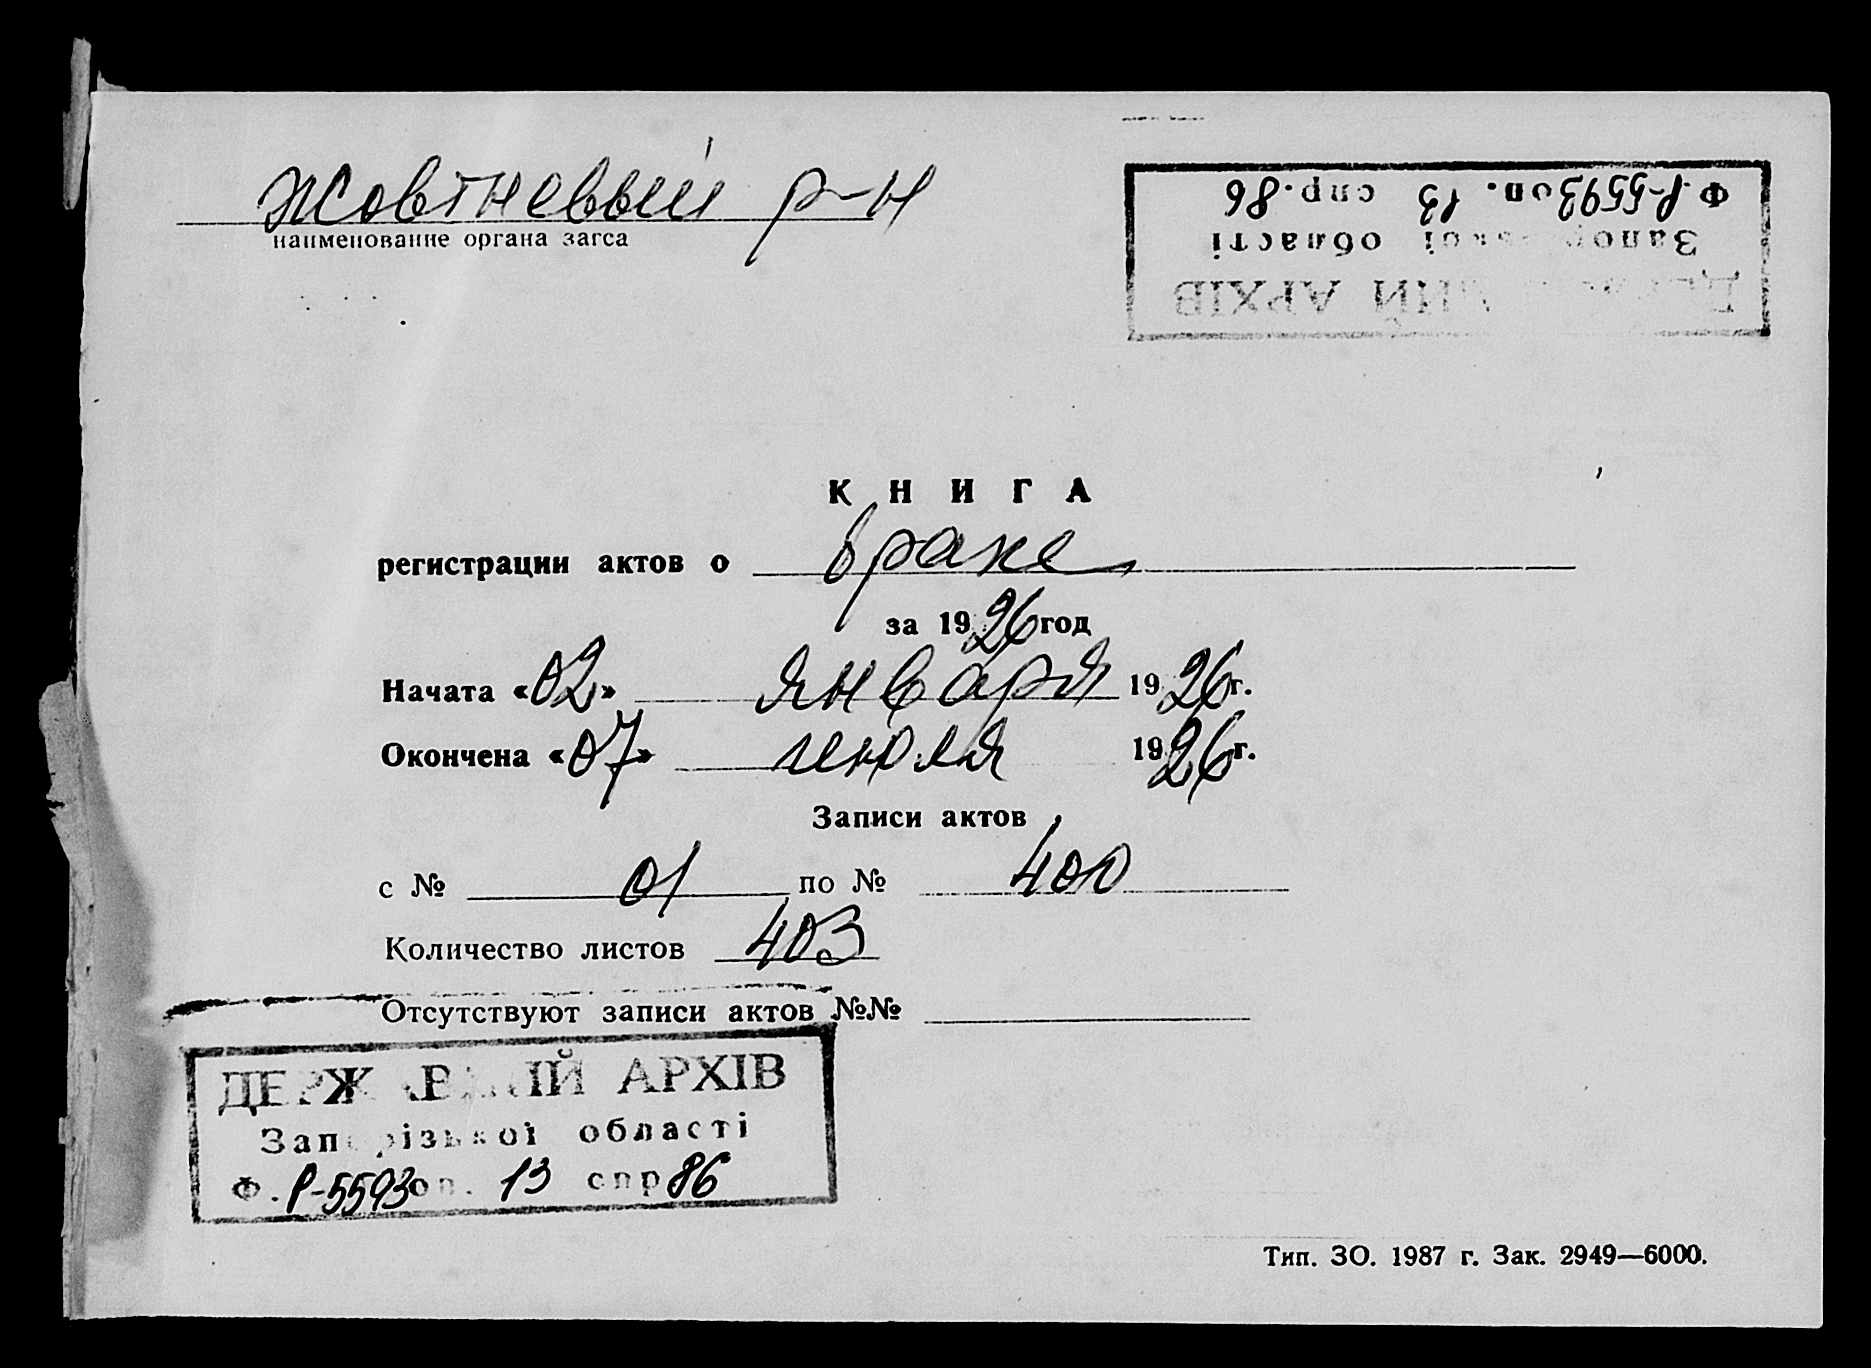 Жовтневый р-н
наименование органа загса
Ф. Р-5593 оп. 13 спр. 86
області
АРХІВ
КНИГА
регистрации актов о браке
за 1926 год
Начата «02» января 1926 г.
Окончена «07» июля 1926 г.
Записи актов
с № 01 по № 400
Количество листов 403
Отсутствуют записи актов №№
ДЕРЖАВНИЙ АРХІВ
Запорізької області
Ф. Р-5593 оп. 13 спр 86
Тип. ЗО. 1987 г. Зак. 2949—6000.